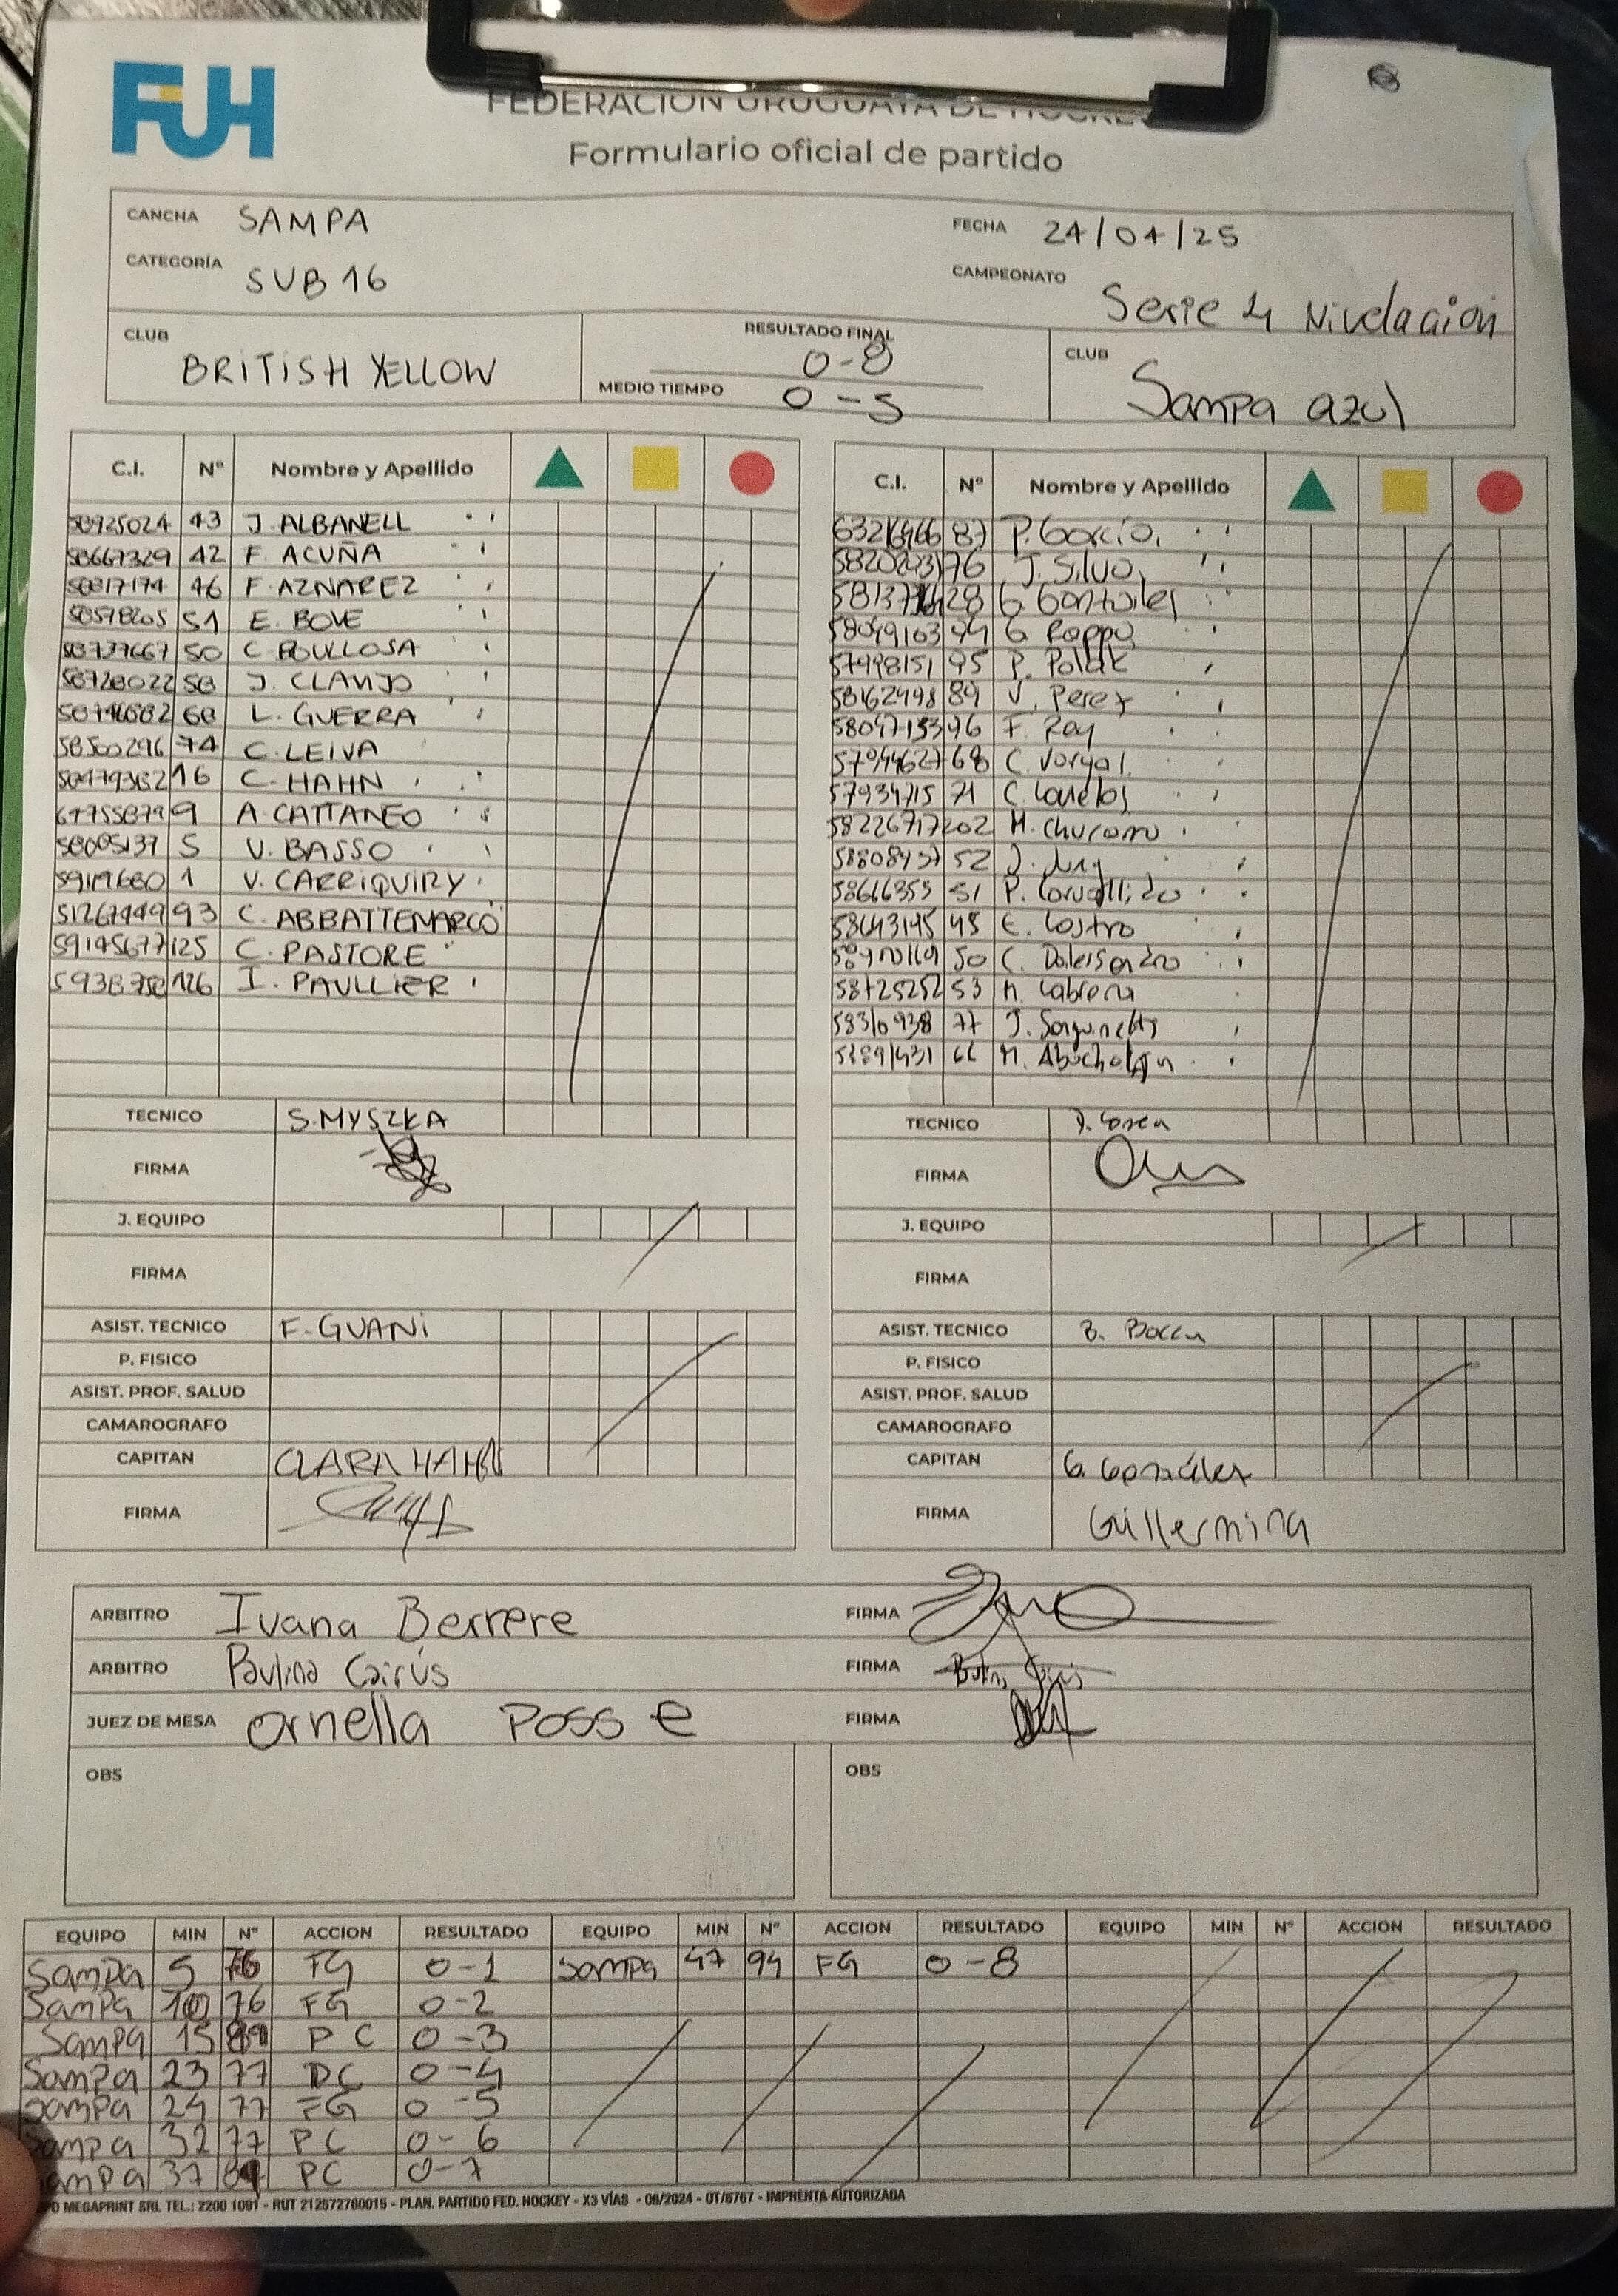 FUH
FEDERACIÓN URUGUAYA DE HOCKEY
Formulario oficial de partido
CANCHA SAMPA
FECHA 24/04/25
CATEGORÍA SUB 16
CAMPEONATO Serie 4 Nivelación
CLUB BRITISH YELLOW
RESULTADO FINAL 0-8
MEDIO TIEMPO 0-5
CLUB Sampa azul
C.I. Nº Nombre y Apellido
43 J. ALBANELL
58667329 42 F. ACUÑA
58817174 46 F. AZNAREZ
51 E. BOVE
58727667 50 C. BOULLOSA
58728022 58 J. CLAVIJO
68 L. GUERRA
58500296 74 C. LEIVA
58479382 16 C. HAHN
9 A. CATTANEO
58085137 5 V. BASSO
59119680 1 V. CARRIQUIRY
51267449 93 C. ABBATTEMARCO
59145677 125 C. PASTORE
126 I. PAULLIER
TECNICO S. MYSZKA
FIRMA
J. EQUIPO
FIRMA
ASIST. TECNICO F. GUANI
P. FISICO
ASIST. PROF. SALUD
CAMAROGRAFO
CAPITAN CLARA HAHN
FIRMA
C.I. Nº Nombre y Apellido
87 P. García
76 J. Silva
28 G. González
94 G.
57498151 95 P. Polak
58162498 89 J. Perez
96 F. Rey
68 C.
57934715 71 C.
202 M. Churarro
52 J. Jung
51 P.
58643145 45 C. Castro
50 C.
58725252 53 M. Cabrera
58310938 77 J. Sanguinetti
66 M.
TECNICO
FIRMA
J. EQUIPO
FIRMA
ASIST. TECNICO B.
P. FISICO
ASIST. PROF. SALUD
CAMAROGRAFO
CAPITAN G. González
FIRMA Guillermina
ARBITRO Ivana Berrere FIRMA
ARBITRO Paulina Cairús FIRMA
JUEZ DE MESA Ornella Posse FIRMA
OBS OBS
EQUIPO MIN Nº ACCION RESULTADO EQUIPO MIN Nº ACCION RESULTADO EQUIPO MIN Nº ACCION RESULTADO
Sampa 5 76 FG 0-1 Sampa 47 94 FG 0-8
Sampa 10 76 FG 0-2
Sampa 15 89 PC 0-3
Sampa 23 77 PC 0-4
Sampa 24 77 FG 0-5
Sampa 32 77 PC 0-6
Sampa 37 89 PC 0-7
MEGAPRINT SRL TEL.: 2200 1091 - RUT 212572760015 - PLAN. PARTIDO FED. HOCKEY - X3 VÍAS - 06/2024 - OT/6767 - IMPRENTA AUTORIZADA